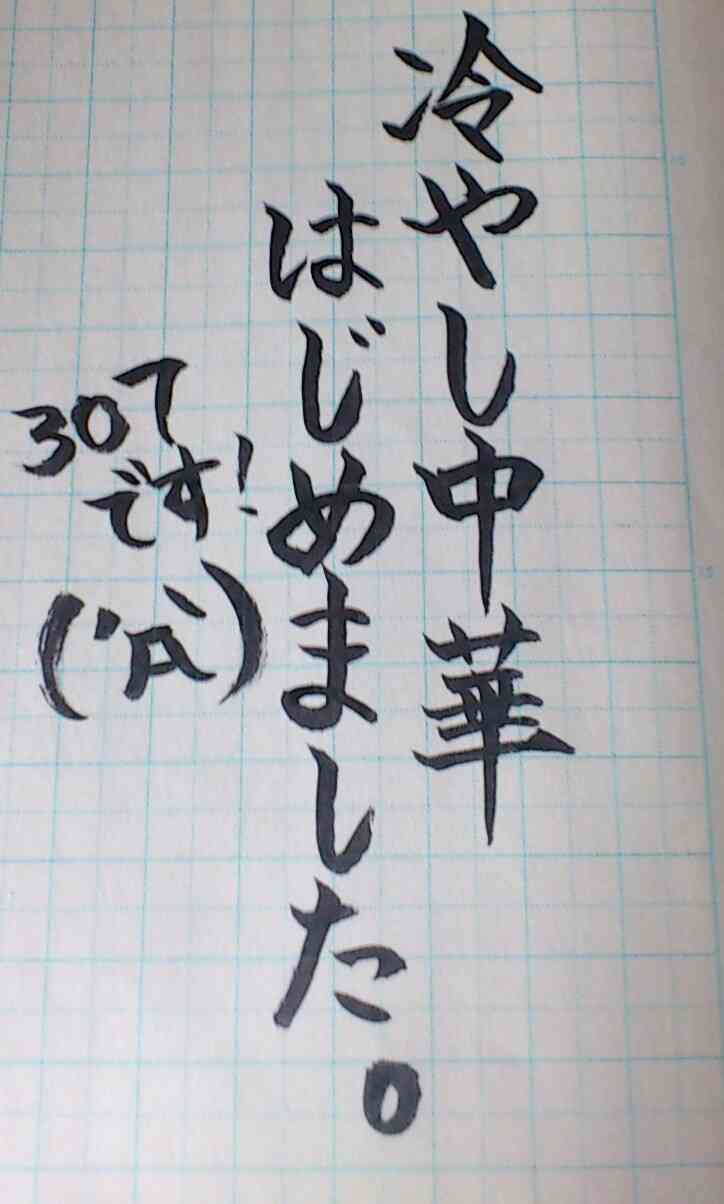 冷やし中華
はじめました。
30て
です!
('Д`)